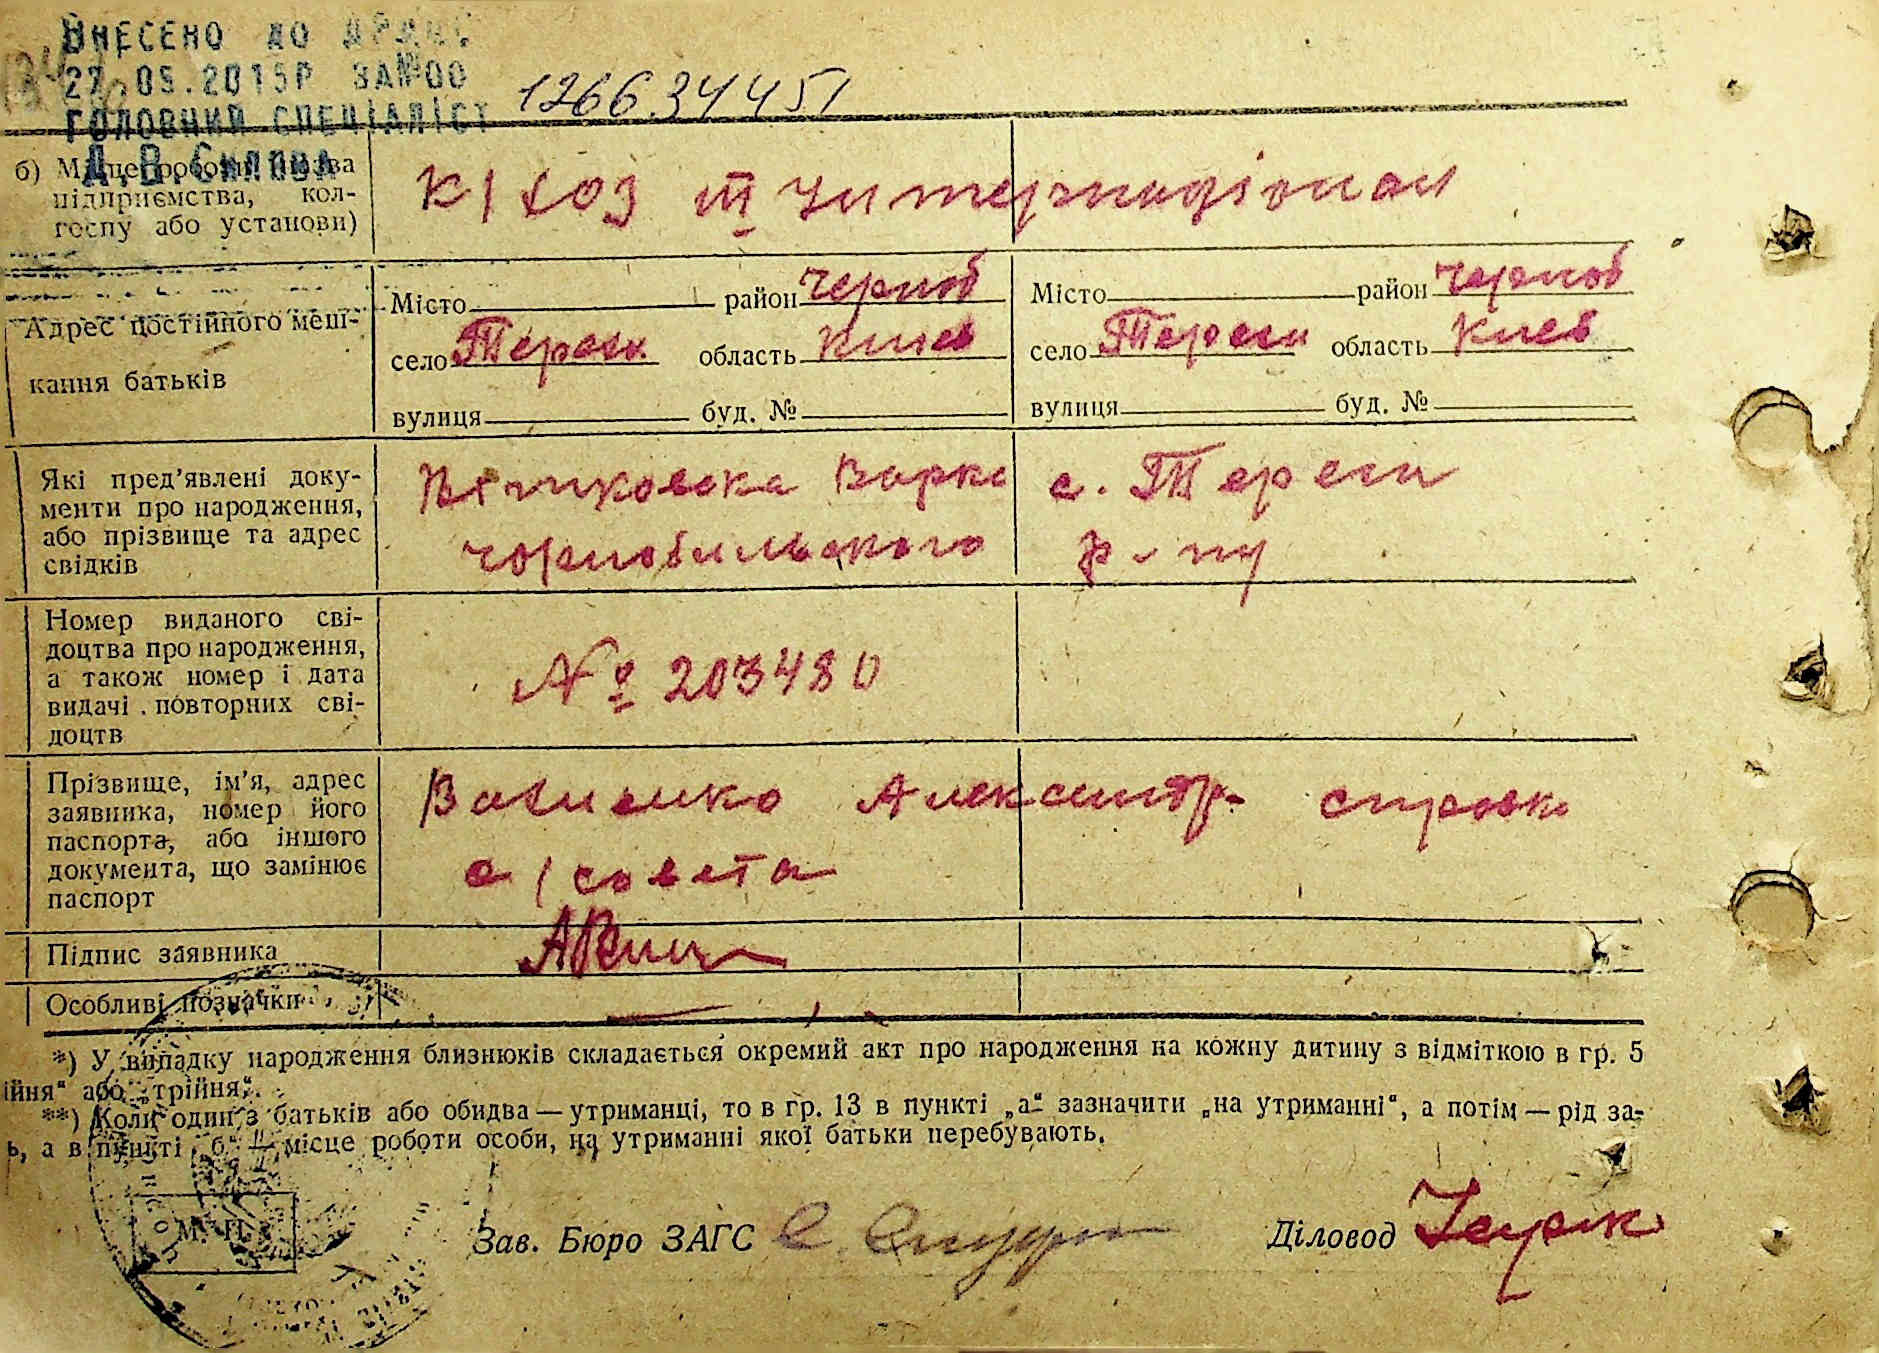 ВНЕСЕНО ДО ДРАЦС
27.05.2015Р ЗА№00 126634451
ГОЛОВНИЙ СПЕЦІАЛІСТ
Д.В.
б) Місце роботи (назва підприємства, кол-
госпу або установи)
К/хоз III Интернаціонал
Адрес постійного меш-
кання батьків
Місто район Черноб
село Тереси область Киев
вулиця буд. №
Місто район Черноб
село Тереси область Киев
вулиця буд. №
Які пред'явлені доку-
менти про народження,
або прізвище та адрес
свідків
Варка с. Тереси
чорнобильского р-ну
Номер виданого сві-
доцтва про народження,
а також номер і дата
видачі повторних сві-
доцтв
№ 203480
Прізвище, ім'я, адрес
заявника, номер його
паспорта, або іншого
документа, що замінює
паспорт
Александр справка
с/совета
Підпис заявника
Особливі позначки
*) У випадку народження близнюків складається окремий акт про народження на кожну дитину з відміткою в гр. 5
ійня" або „трійня".
**) Коли один з батьків або обидва — утриманці, то в гр. 13 в пункті „а" зазначити „на утриманні", а потім — рід за-
ь, а в пункті „б" — місце роботи особи, на утриманні якої батьки перебувають.
М. П.
Зав. Бюро ЗАГС
Діловод